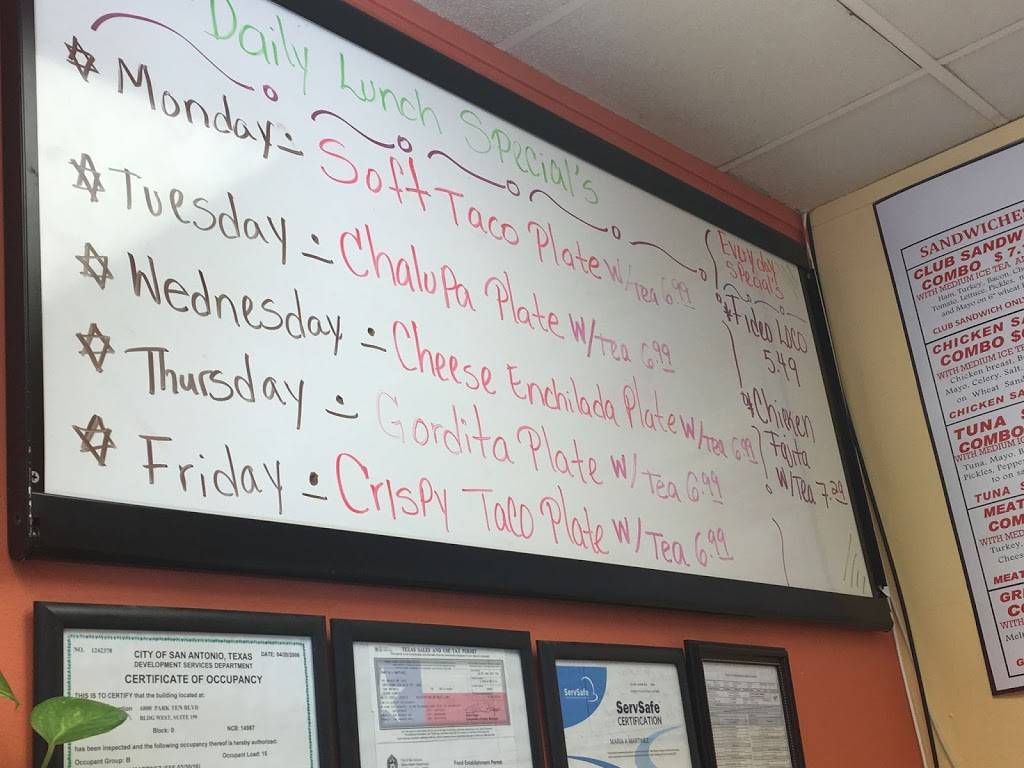 Daily Lunch Special's
Monday - Soft Taco Plate W/Tea 6.99
Tuesday - Chalupa Plate W/Tea 6.99
Wednesday - Cheese Enchilada Plate W/Tea 6.99
Thursday - Gordita Plate W/Tea 6.99
Friday - Crispy Taco Plate W/Tea 6.99
Everyday
Special's
Fideo Loco
5.49
Chicken
Fajita
W/Tea 7.29
SANDWICHES
CLUB SANDW
COMBO $7.
WITH MEDIUM ICE TEA
Ham, Turkey, Bacon,
Tomato, Lettuce, Pickles,
and Mayo on 6" wheat
CLUB SANDWICH ONL
CHICKEN SA
COMBO $
WITH MEDIUM ICE TE
Chicken breast,
Mayo, Celery, Salt,
on Wheat
CHICKEN SA
TUNA
COMBO
WITH MEDIUM IC
Tuna, Mayo,
Pickles, Peppe
to on
TUNA
MEAT
COM
WITH MED
Turkey,
Chees
MEAT
GR
COM
WITH
Mel
NO. 1242378
CITY OF SAN ANTONIO, TEXAS
DATE: 04/20/2006
DEVELOPMENT SERVICES DEPARTMENT
CERTIFICATE OF OCCUPANCY
THIS IS TO CERTIFY that the building located at:
6800 PARK TEN BLVD
BLDG WEST, SUITE 190
Block: 0
NCB: 14087
has been inspected and the following occupancy thereof is hereby authorized.
Occupant Group: B
Occupant Load: 15
TEXAS SALES AND USE TAX PERMIT
Food Establishment Permit
ServSafe
ServSafe
CERTIFICATION
MARIA A MARTINEZ